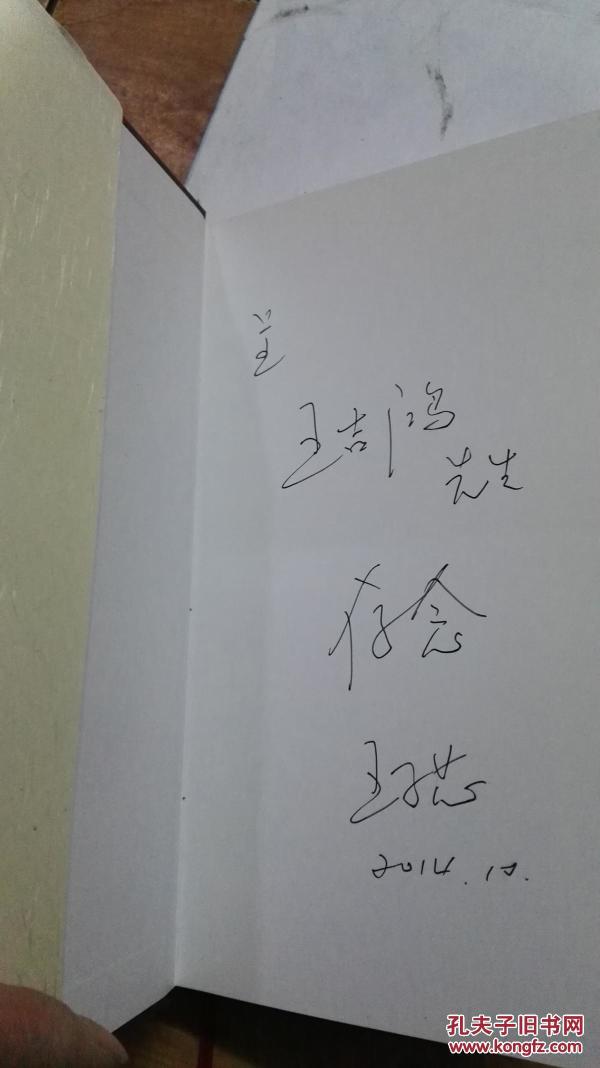 呈
王吉鸿
先生
存念
王
2014.12.
孔夫子旧书网
www.kongfz.com